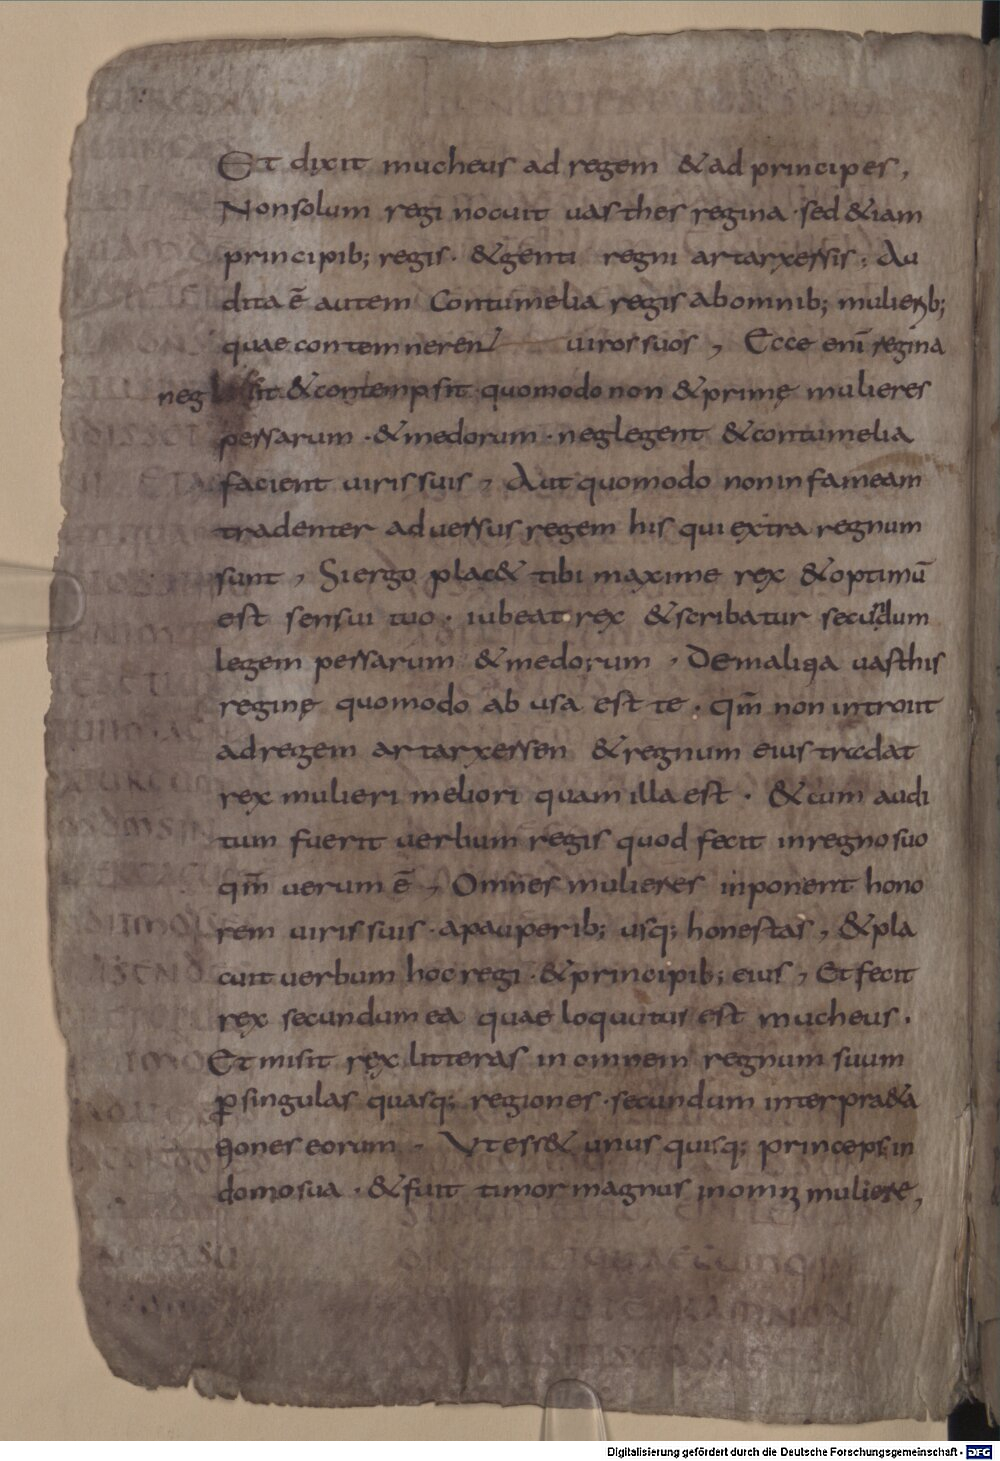 Et dixit mucheus ad regem & ad principes,
Non solum regi nocuit uasthes regina · sed & iam
principib; regis · & genti regni artarxessis; Au
dita ē autem Contumelia regis ab omnib; mulierib;
quae contemnerent uiros suos, Ecce enī regina
neglexit & contempsit quomodo non & prime mulieres
persarum · & medorum · neglegent & contumelia
facient uiris suis, Aut quomodo non infameam
tradenter aduersus regem his qui extra regnum
sunt, Si ergo plac& tibi maxime rex & optimū
est sensui tuo · iubeat rex & scribatur secundum
legem persarum & medorum, De maliqa uasthis
reginę quomodo ab usa est te · qm̄ non introiit
ad regem artarxersen & regnum eius tradat
rex mulieri meliori quam illa est · & cum audi
tum fuerit uerbum regis quod fecit in regno suo
qm̄ uerum ē, Omnes mulieres inponent hono
rem uiris suis · a pauperib; usq; honestas, & pla
cuit uerbum hoc regi · & principib; eius, Et fecit
rex secundum ea quae loquutus est mucheus ·
Et misit rex litteras in omnem regnum suum
ꝑ singulas quasq; regiones · secundum interpra&a
tiones eorum · Vt ess& unus quisq; princeps in
domo sua · & fuit timor magnus in omni muliere,
Digitalisierung gefördert durch die Deutsche Forschungsgemeinschaft - DFG